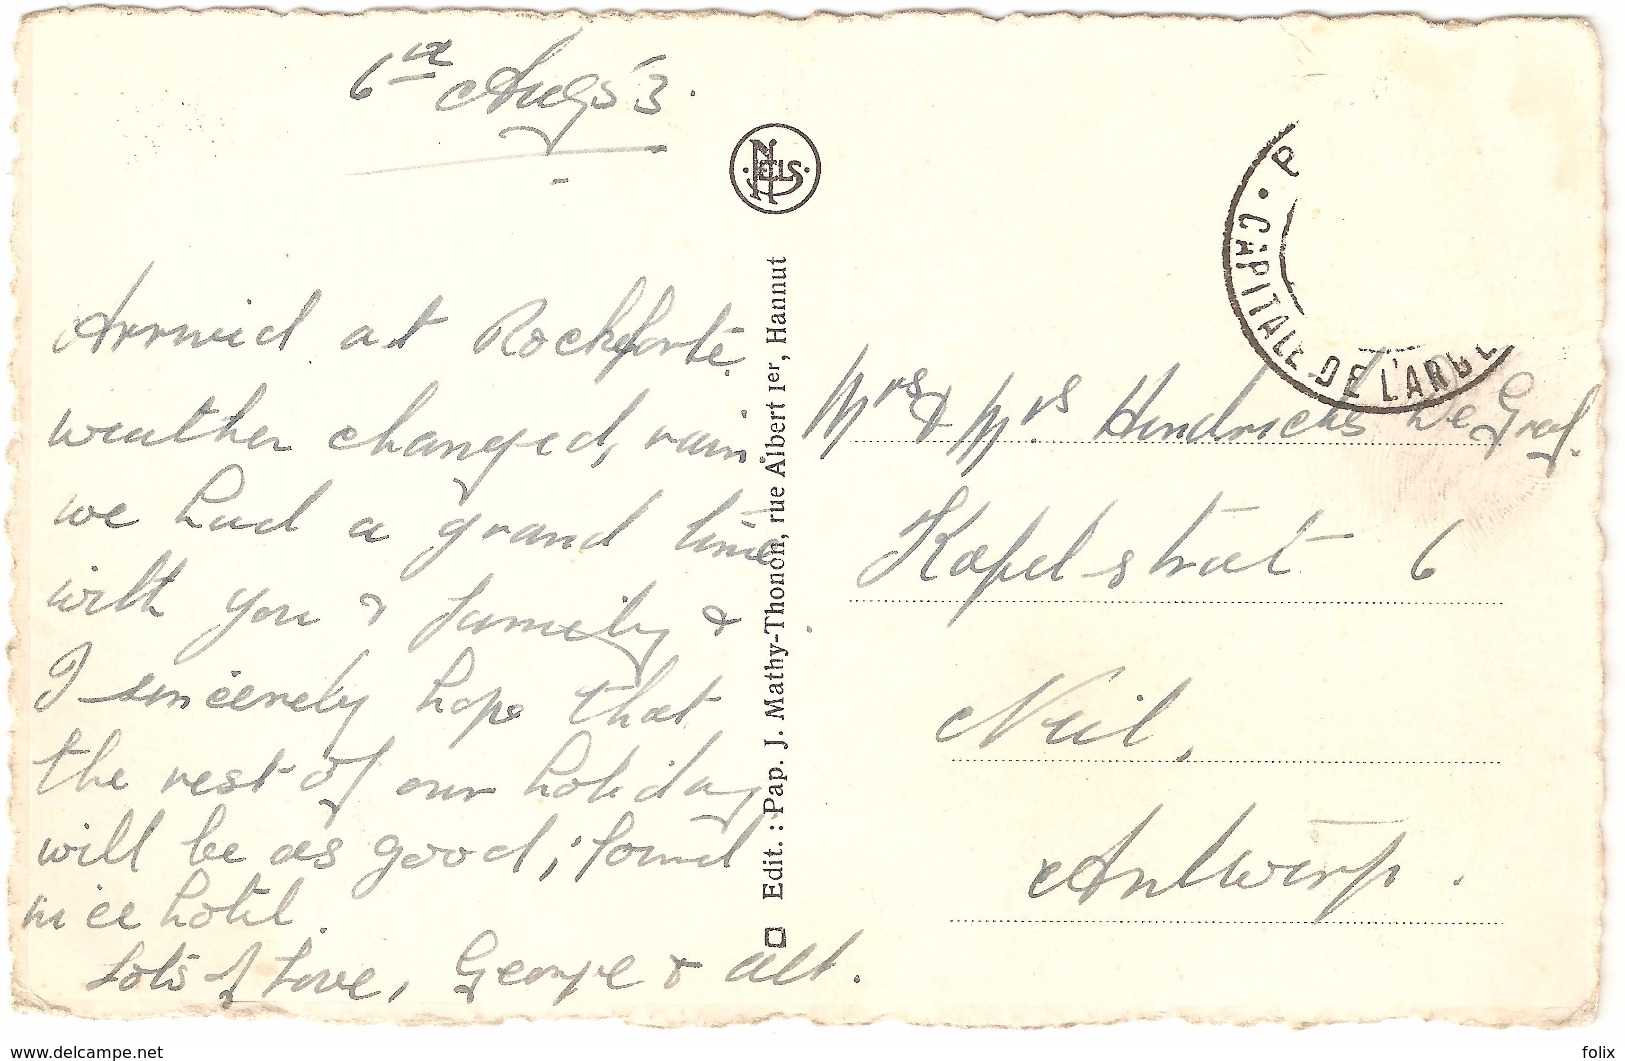 6th Aug 53.
Arrived at Rochforte.
weather changed, rain
we had a grand time
with you & family &
I sincerely hope that
the rest of our holiday
will be as good, found
nice hotel.
Lots of Love, George & all.
NELS
Edit. : Pap. J. Mathy-Thonon, rue Albert Ier, Hannut
P
• CAPITALE DE L'ARDE
Mrs & Mrs Hendrickx De Graf.
Kapelstraat 6
Niel,
Antwerp.
www.delcampe.net
folix